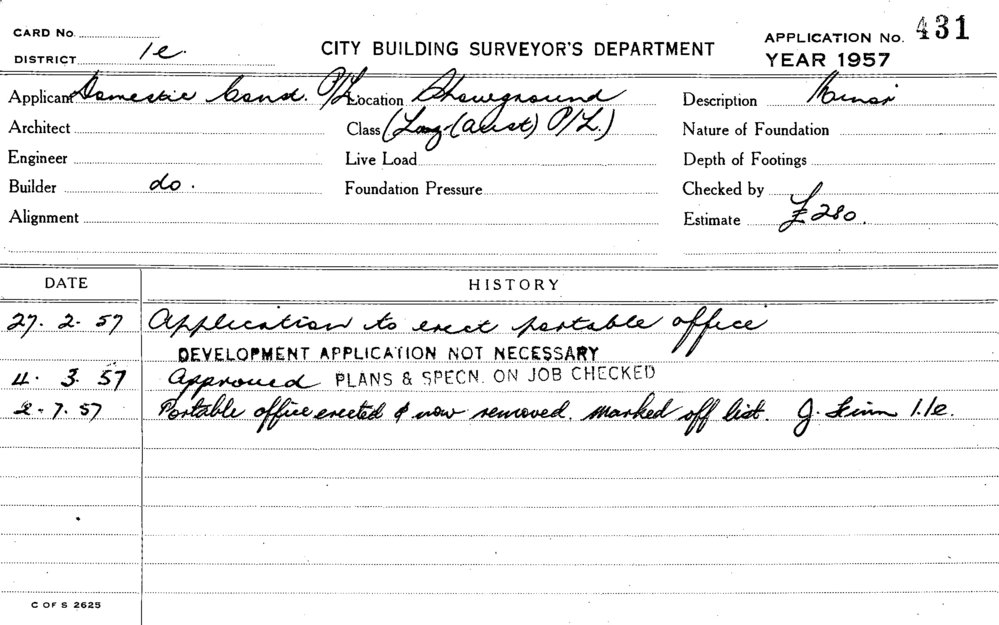 CARD No.
DISTRICT 1e.
CITY BUILDING SURVEYOR'S DEPARTMENT
APPLICATION No. 431
YEAR 1957
Applicant Domestic Cond. P/L. Location Showground Description Minor
Architect Class ( (Aust) P/L.) Nature of Foundation
Engineer Live Load Depth of Footings
Builder do. Foundation Pressure Checked by
Alignment Estimate £280.
DATE HISTORY
27. 2. 57 Application to erect portable office
DEVELOPMENT APPLICATION NOT NECESSARY
4. 3. 57 Approved PLANS & SPECN. ON JOB CHECKED
2-7.57 Portable office erected & now removed. Marked off list. J. 1.1e.
C OF S 2625